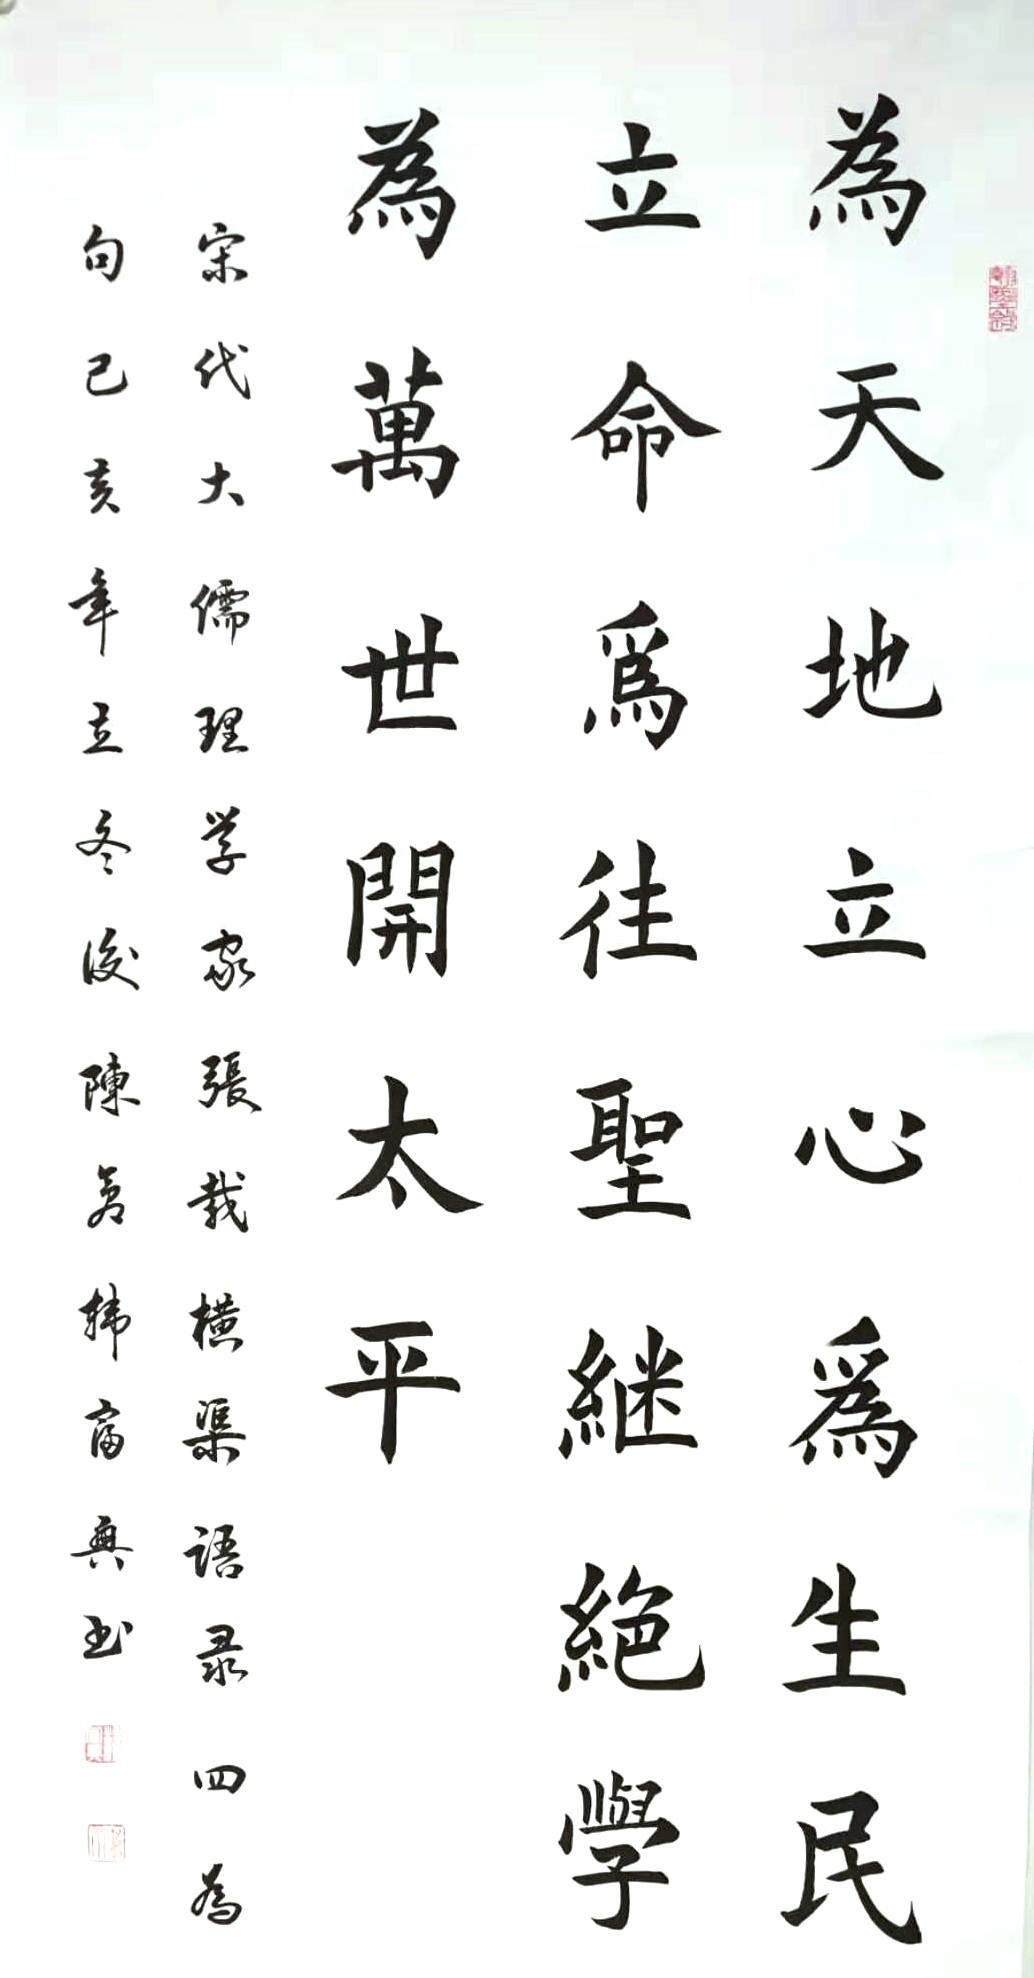 為天地立心爲生民
立命爲往聖継絕學
為萬世開太平
宋代大儒理学家張載橫渠语录四为
句己亥年立冬後陳倉韩富典书